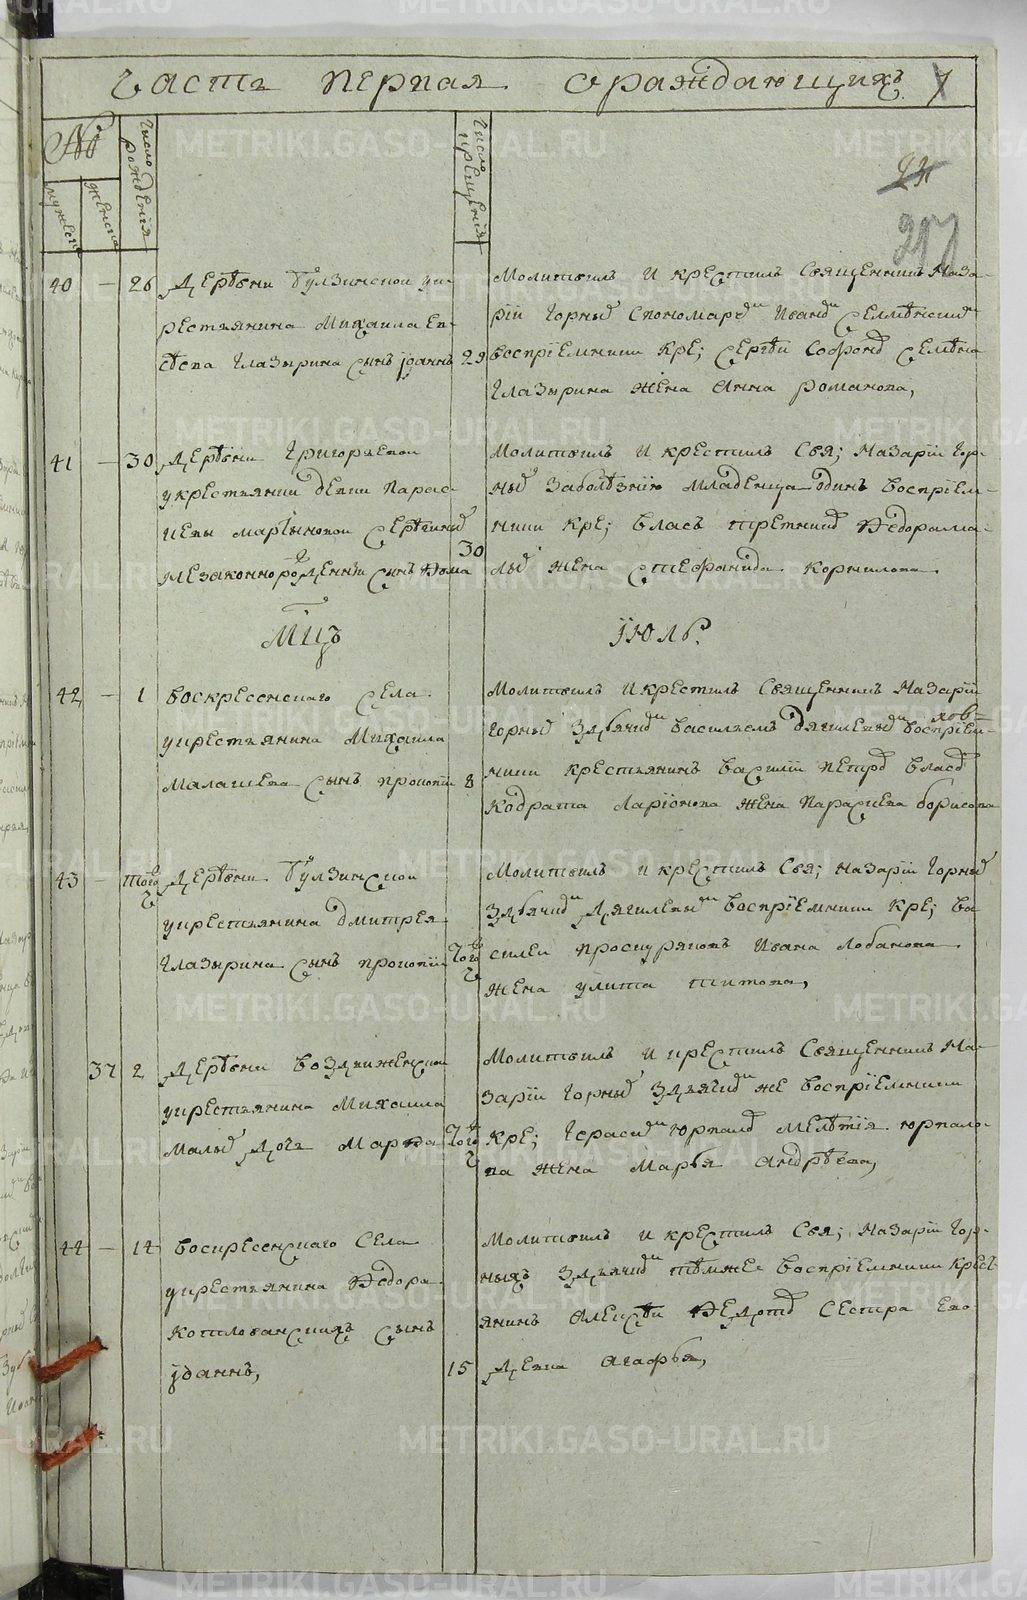 Часть первая о раждающихъ 7
№
мужеска
женска
Число рожденія
Число крещенія
24
217
40 — 26 Деревни Булзинской у кре-
рестьянина Михаила Ев-
сѣева Глазырина сынъ іоаннъ 29
Молитвилъ и крестилъ Священникъ Наза-
рій Горныхъ Спономаремъ Иваномъ
воспріемники кре; Сергѣй Софоновъ Семена
Глазырина жена Анна романова,
41 — 30 Деревни Григорьевой
укрестьянки девки Парас-
кевы мартыновой Серѣгиныхъ
незаконнорожденный сынъ Фома 30
Молитвилъ и крестилъ Свя; Назарій Гор-
ныхъ заболѣзнію младенца одинъ воспріем-
ники кре; власъ третниковъ Федора ма-
лыхъ жена стефанида корнилова.
Мцъ іюль.
42 — 1 воскресенскаго села
укрестьянина Михаила
Малашева сынъ прокопій 8
Молитвилъ и крестилъ Священникъ Назарій
Горныхъ здьячкомъ васильемъ дягилевымъ воспріем-
ники крестьянинъ василій петровъ власовъ
Кодрата Ларіонова жена Парасковья борисова
43 — того ч Деревни Булзинской
укрестьянина дмитрея
Глазырина сынъ прокопій того ч
Молитвилъ и крестилъ Свя; назарій Горныхъ
здьячкомъ Дягилевымъ воспріемники кре; ва-
силей проскуряковъ Ивана Лобанова
жена улита титова,
37 2 Деревни воздвиженской
укрестьянина Михаила
малыхъ дочь Марфа того ч
Молитвилъ и крестилъ Священникъ На-
зарій Горныхъ здьячкомъ же воспріемники
кре; Герасимъ юркалов Мелѣтія юркало-
ва жена Марья андрѣева,
44 — 14 воскресенскаго Села
укрестьянина Федора
Котлованскихъ сынъ
іоаннъ, 15
Молитвилъ и крестилъ Свя; Назарій Гор-
ныхъ здьячкомъ тѣмже воспріемники кресть-
янинъ Алексѣй Федотовъ Сестра его
Девка агафья,